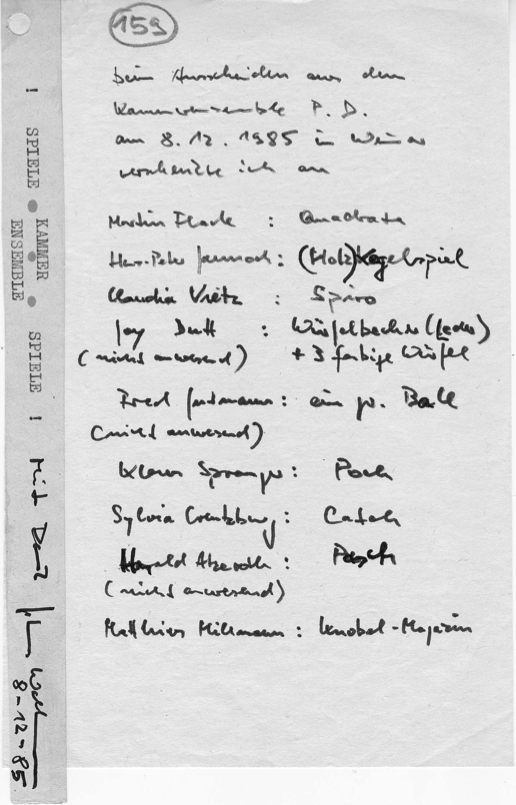 159
beim Ausscheiden aus dem
Kammerensemble P. D.
am 8.12.1985 in Weimar
verschenkte ich an
Martin Flade : Quadrato
Hans-Peter Jannoch : (Holz)Kegelspiel
Claudia Vietz : Spiro
Joy Dutt : Würfelbecher (Leder)
(nicht anwesend) + 3 farbige Würfel
Fred : ein gr. Ball
(nicht anwesend)
Klaus Spranger : Poch
Sylvia Creutzburg : Catch
Harald Atzeroth : Pasch
(nicht anwesend)
Matthias Hillmann : Knobel-Magazin
! SPIELE KAMMER SPIELE !
ENSEMBLE
Mit Dank
8-12-85